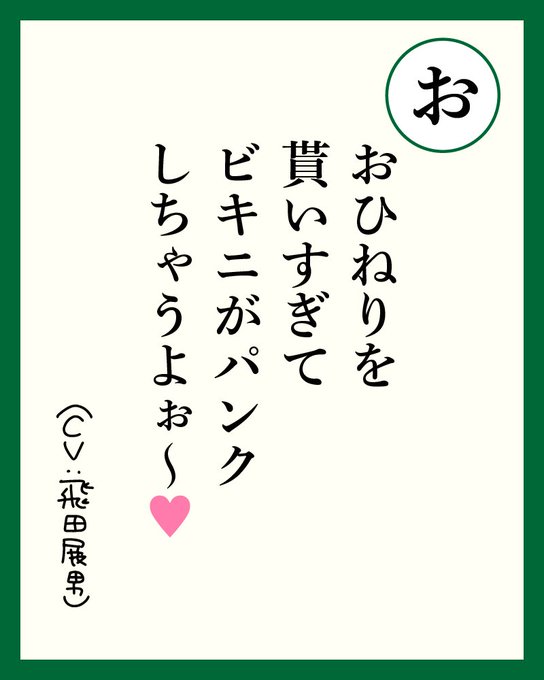 お
おひねりを
貰いすぎて
ビキニがパンク
しちゃうよぉ〜♥
(CV:飛田展男)